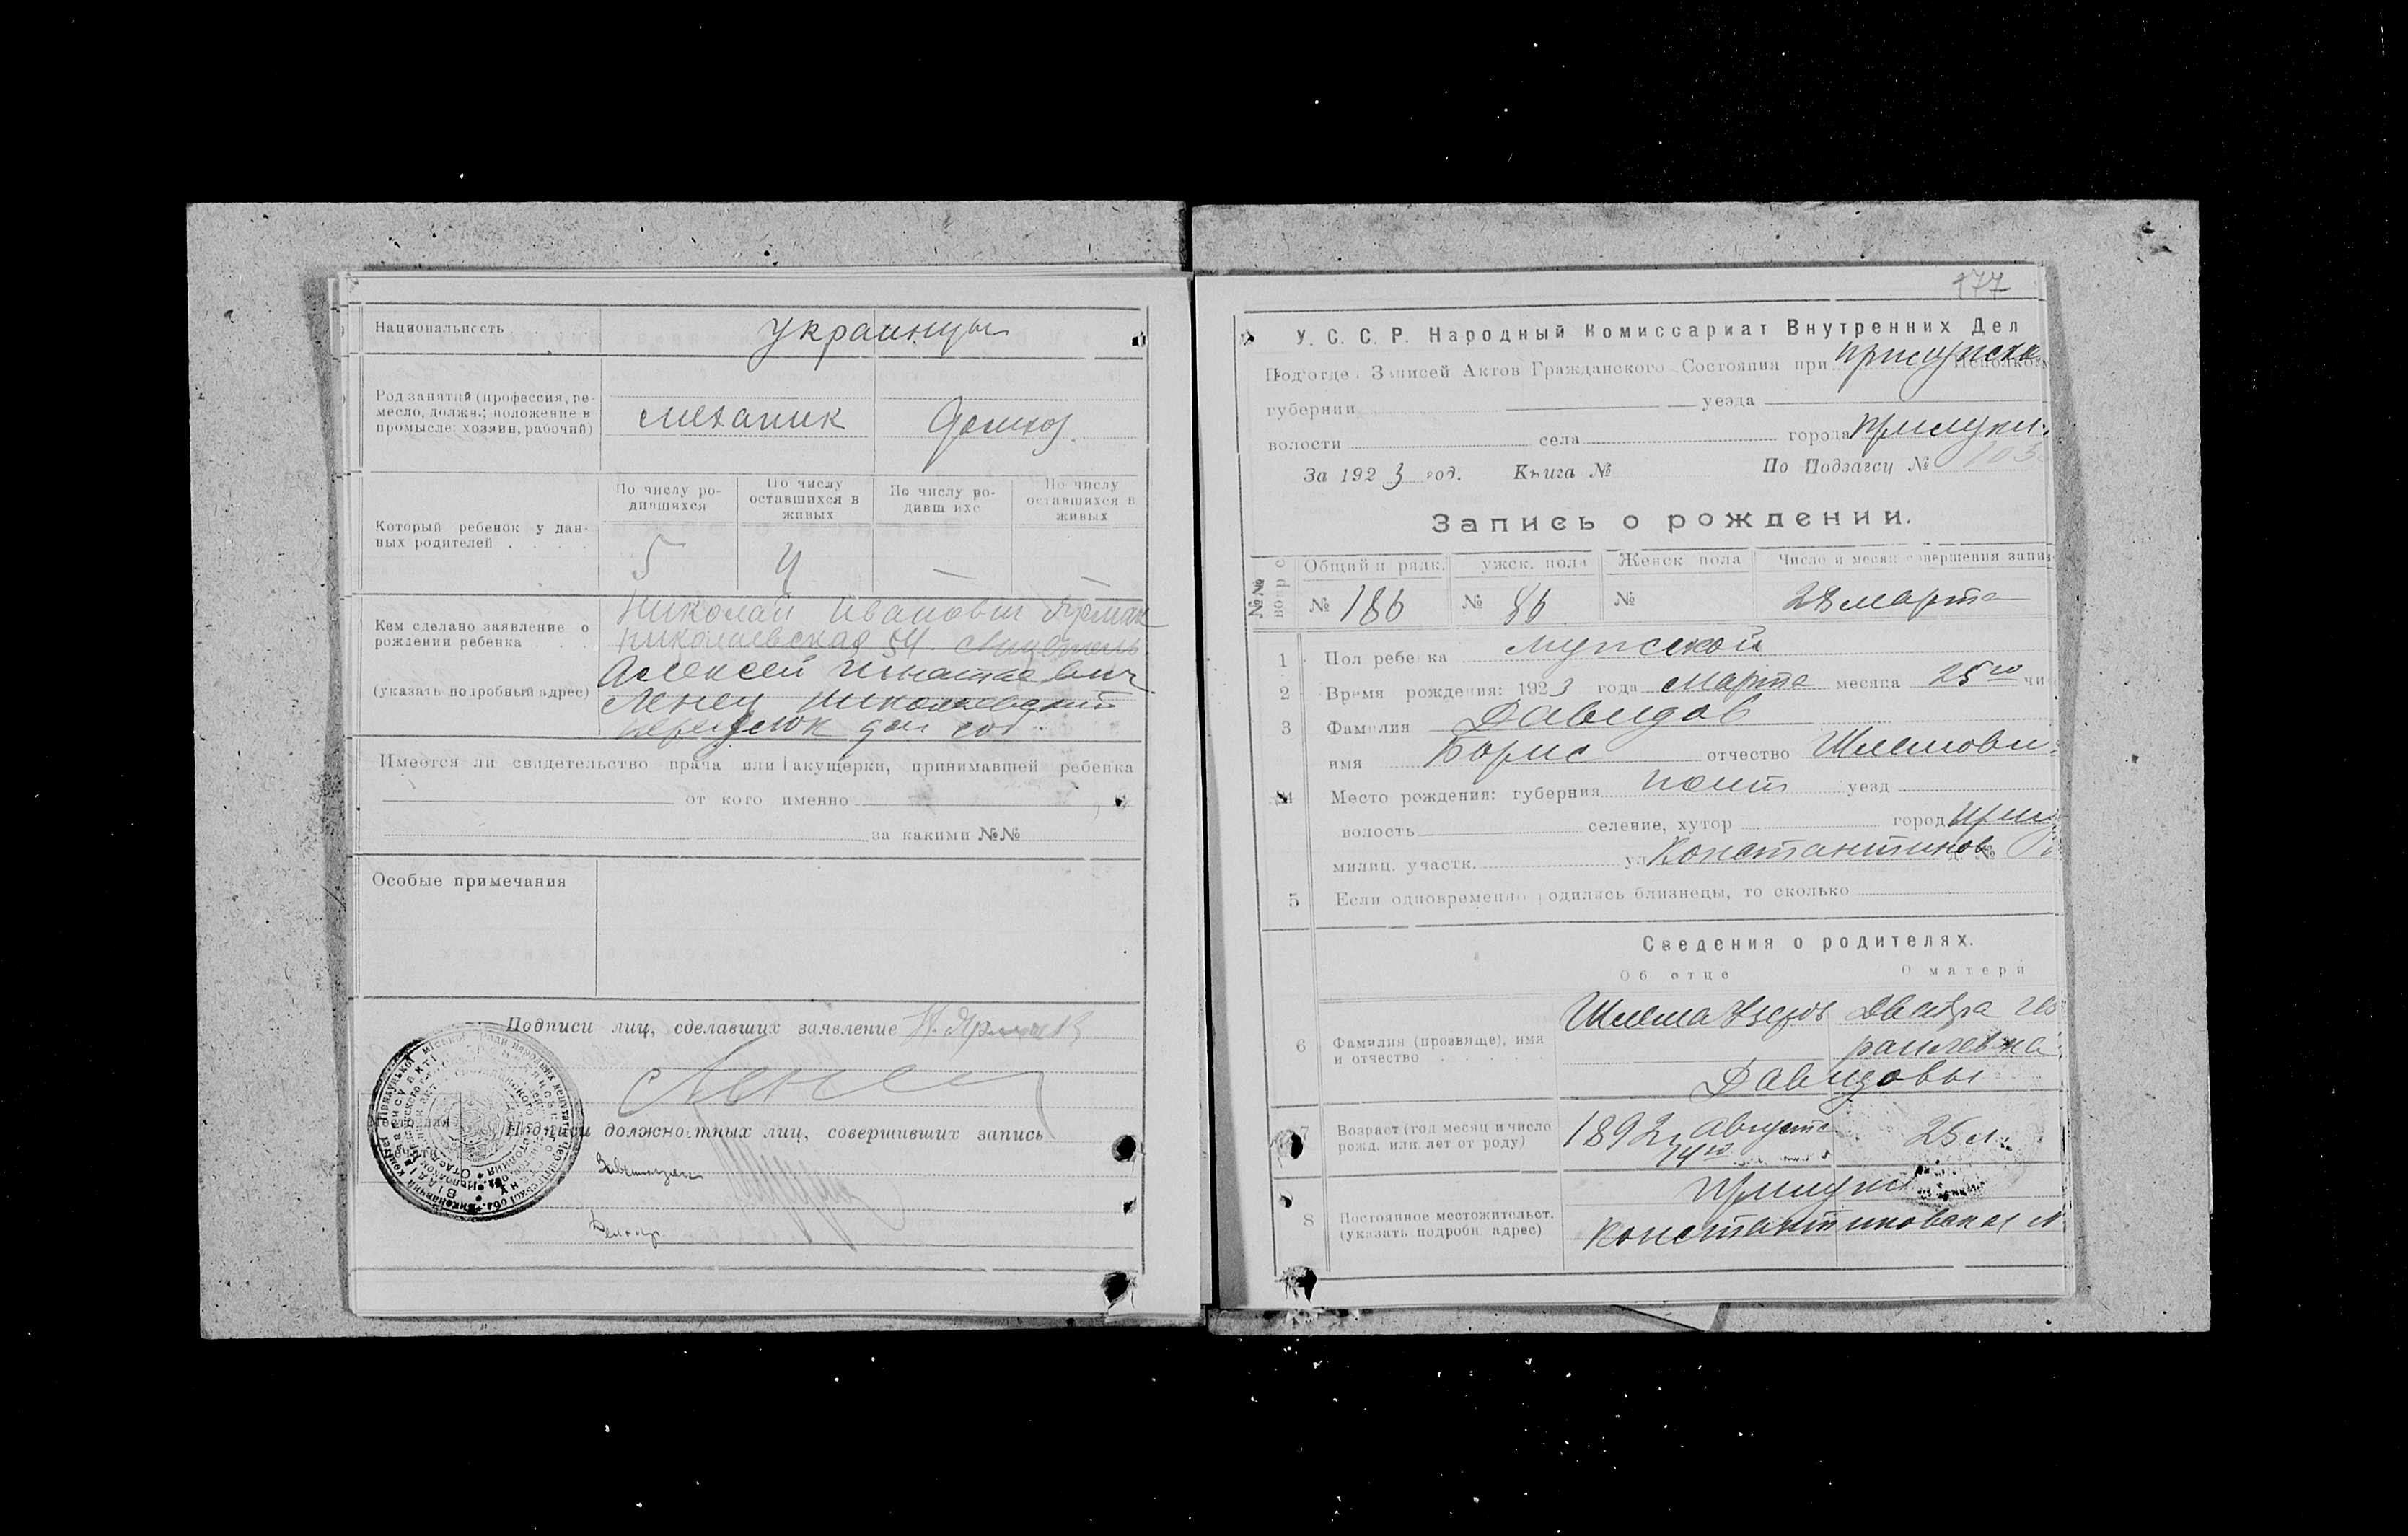 Национальность украинцы
Род занятий (профессия, ре-
месло, должн.; положение в
промысле: хозяин, рабочий)
механик домхоз.
Который ребенок у дан-
ных родителей
По числу ро-
дившихся
По числу
оставшихся в
живых
По числу ро-
дивш ихс
По числу
оставшихся в
живых
5 4 — —
Кем сделано заявление о
рождении ребенка
(указать подробный адрес)
Николай Иванович Ярмак
Николаевская 54.
Алексей Игнатьевич
Ленец Николаевский
переулок дом соб.
Имеется ли свидетельство врача или акушерки, принимавшей ребенка
от кого именно
за какими №№
Особые примечания
Подписи лиц, сделавших заявление Н. Ярмак
Ленец
Подписи должностных лиц, совершивших запись
177
У. С. С. Р. Народный Комиссариат Внутренних Дел
Подотдел Записей Актов Гражданского Состояния при Прилукск Исполком
губернии уезда
волости села города Прилуки.
За 1923 год. Книга № По Подзагсу № 103
Запись о рождении.
№№
Общий п рядк. ужск. пола Женск пола Число и месяц совершения запи
№ 186 № 86 № 28 марта
1 Пол ребенка мужской
2 Время рождения: 1923 года марта месяца 25го чи
3 Фамилия Давидов
имя Борис отчество Шлемови
4 Место рождения: губерния Полт уезд
волость селение, хутор город Прил
милиц. участк. ул Константинов д. №
5 Если одновременно родились близнецы, то сколько
Сведения о родителях.
Об отце О матери
6 Фамилия (прозвище), имя
и отчество
Шлема
раилевна
Давидовы
7 Возраст (год месяц и число
рожд. или лет от роду)
1892 г. августа
14го
25 л.
8 Постоянное местожительст.
(указать подробн. адрес)
Прилуки
Константиновская №